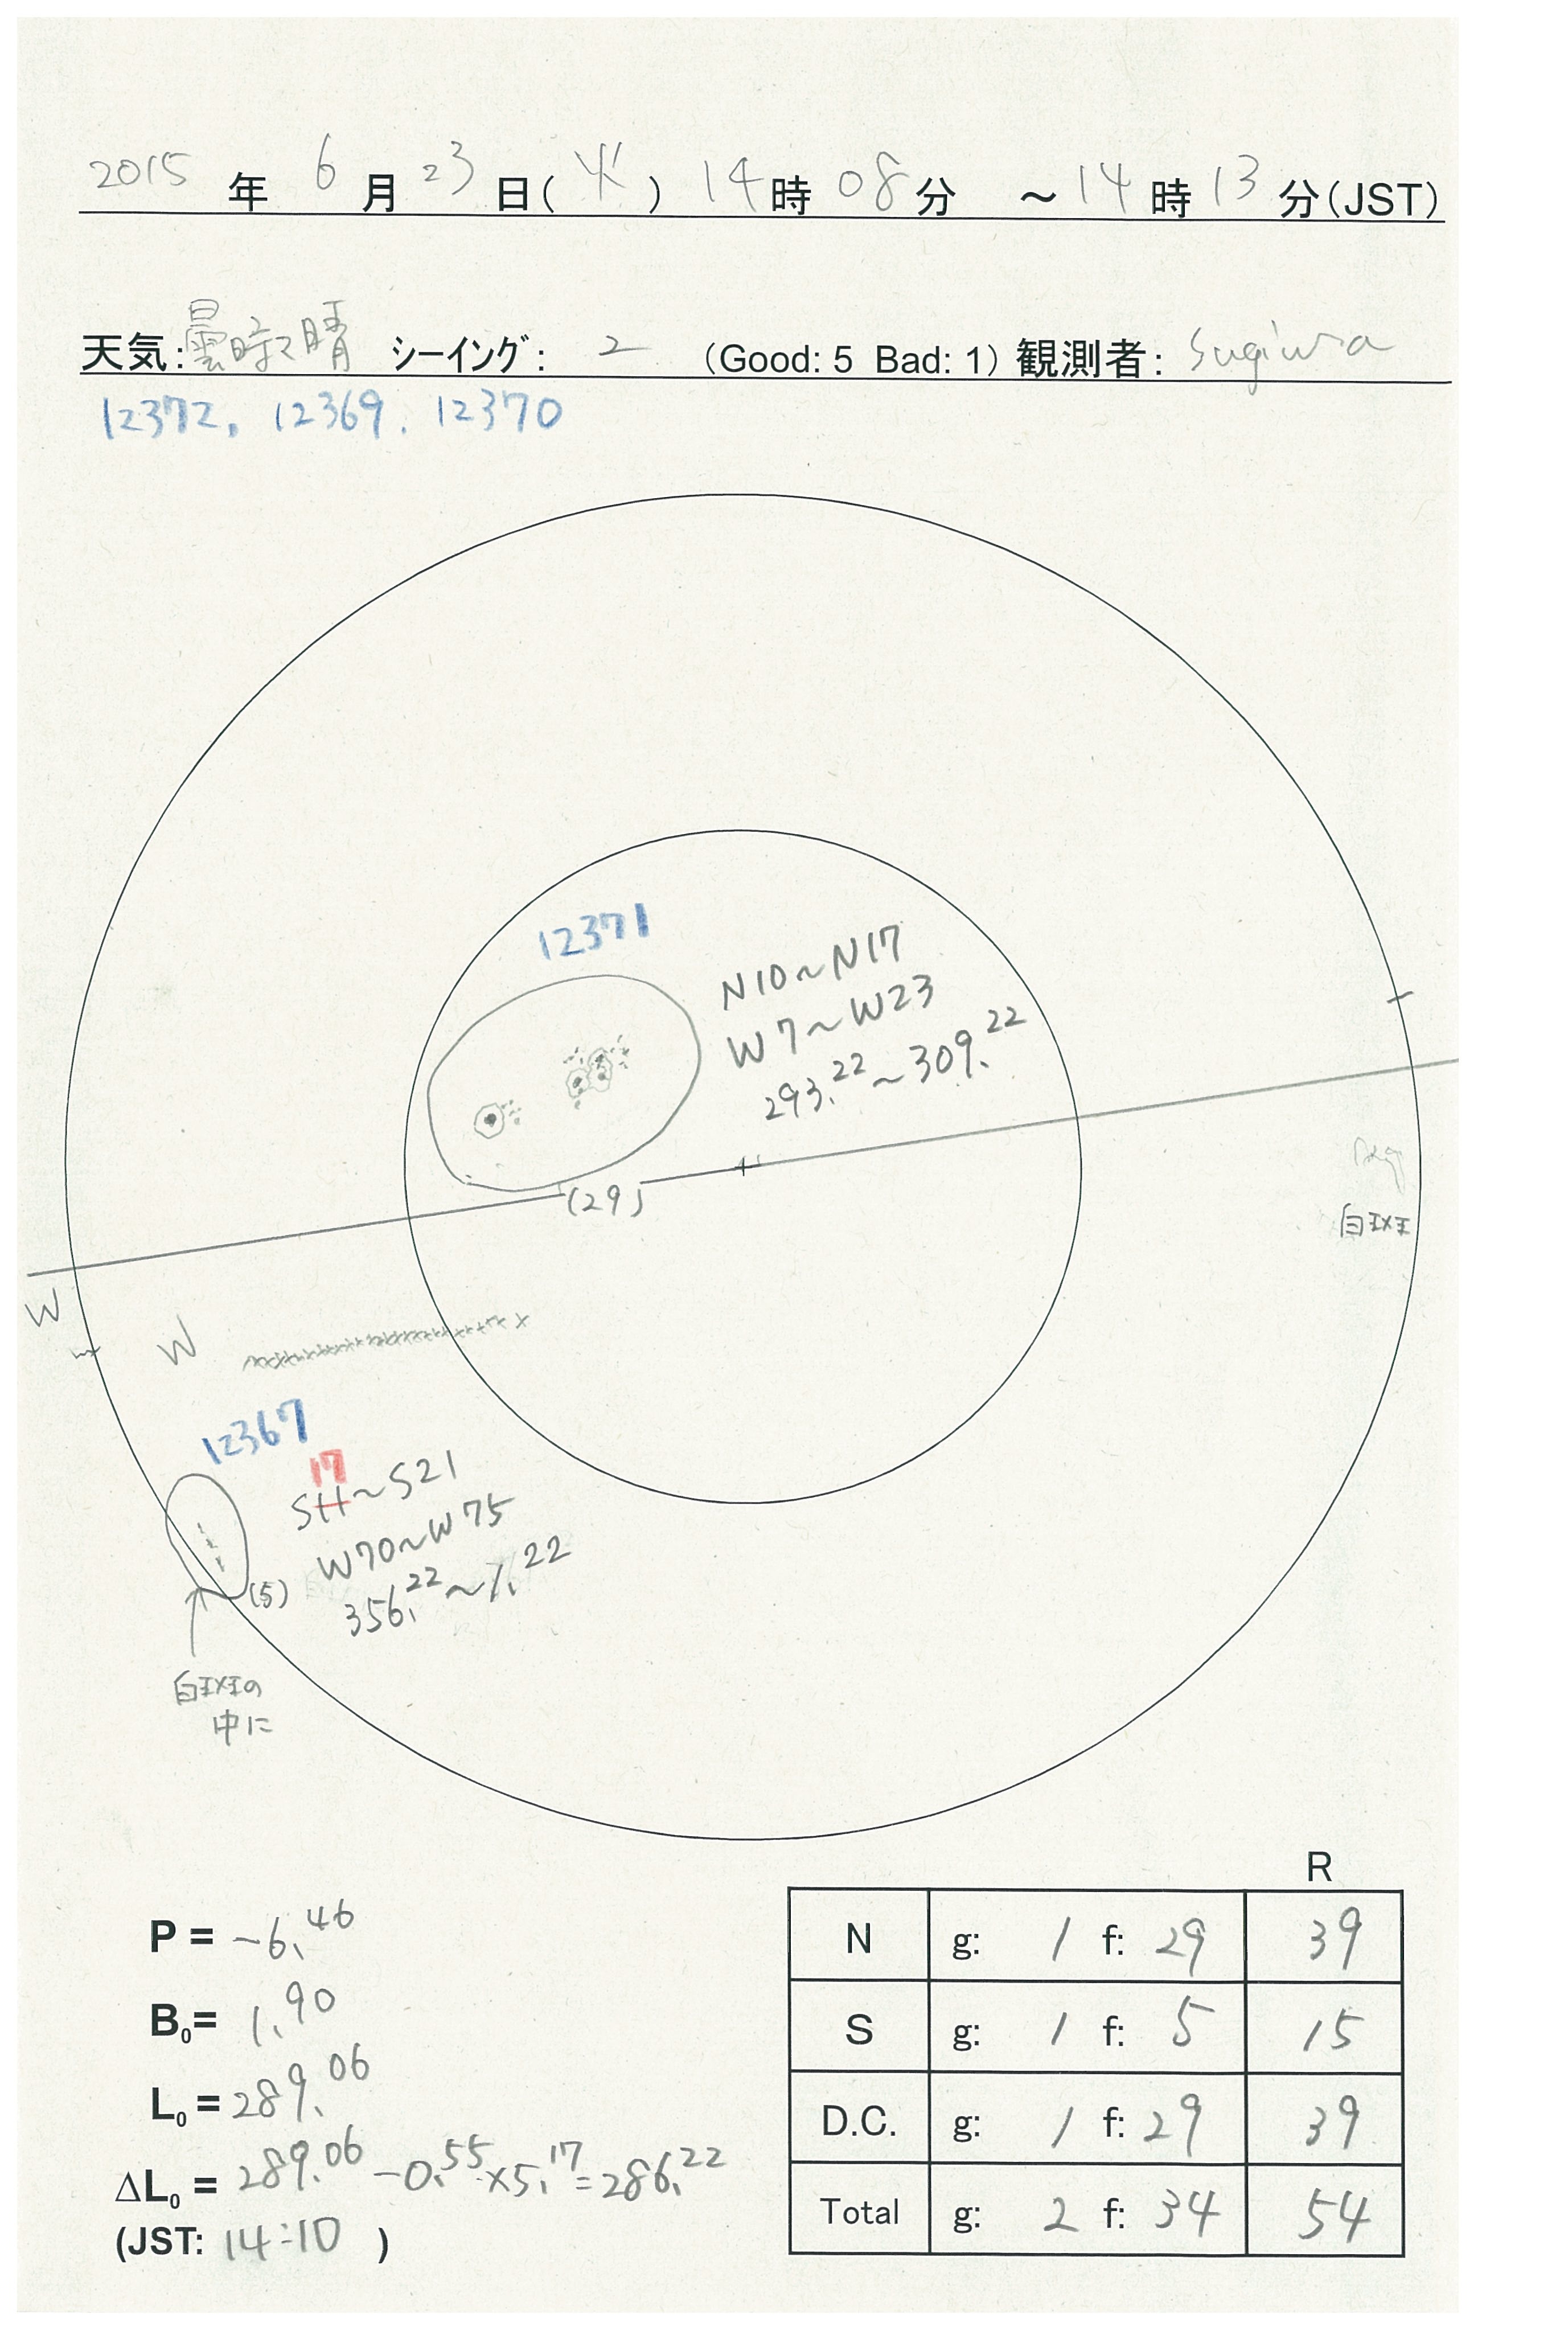 2015 年 6 月 23 日(火) 14時 08分 ～14時13分(JST)
天気:曇時々晴 シーイング: 2 (Good: 5 Bad: 1) 観測者: Sugiura
12372, 12369, 12370
12371
N10~N17
W7~W23
293.22~309.22
(29)
白斑
W
W
12367
17
S11~S21
W70~W75
356.22~1.22
(5)
白斑の
中に
R
P = -6.46
B0= 1.90
L0 = 289.06
ΔL0 = 289.06 -0.55×5.17=286.22
(JST: 14:10 )
N g: 1 f: 29 39
S g: 1 f: 5 15
D.C. g: 1 f: 29 39
Total g: 2 f: 34 54